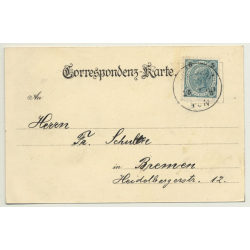 Correspondenz-Karte.
An
Herrn
Fr. Schulten
in Bremen
Heidelbergerstr. 12.